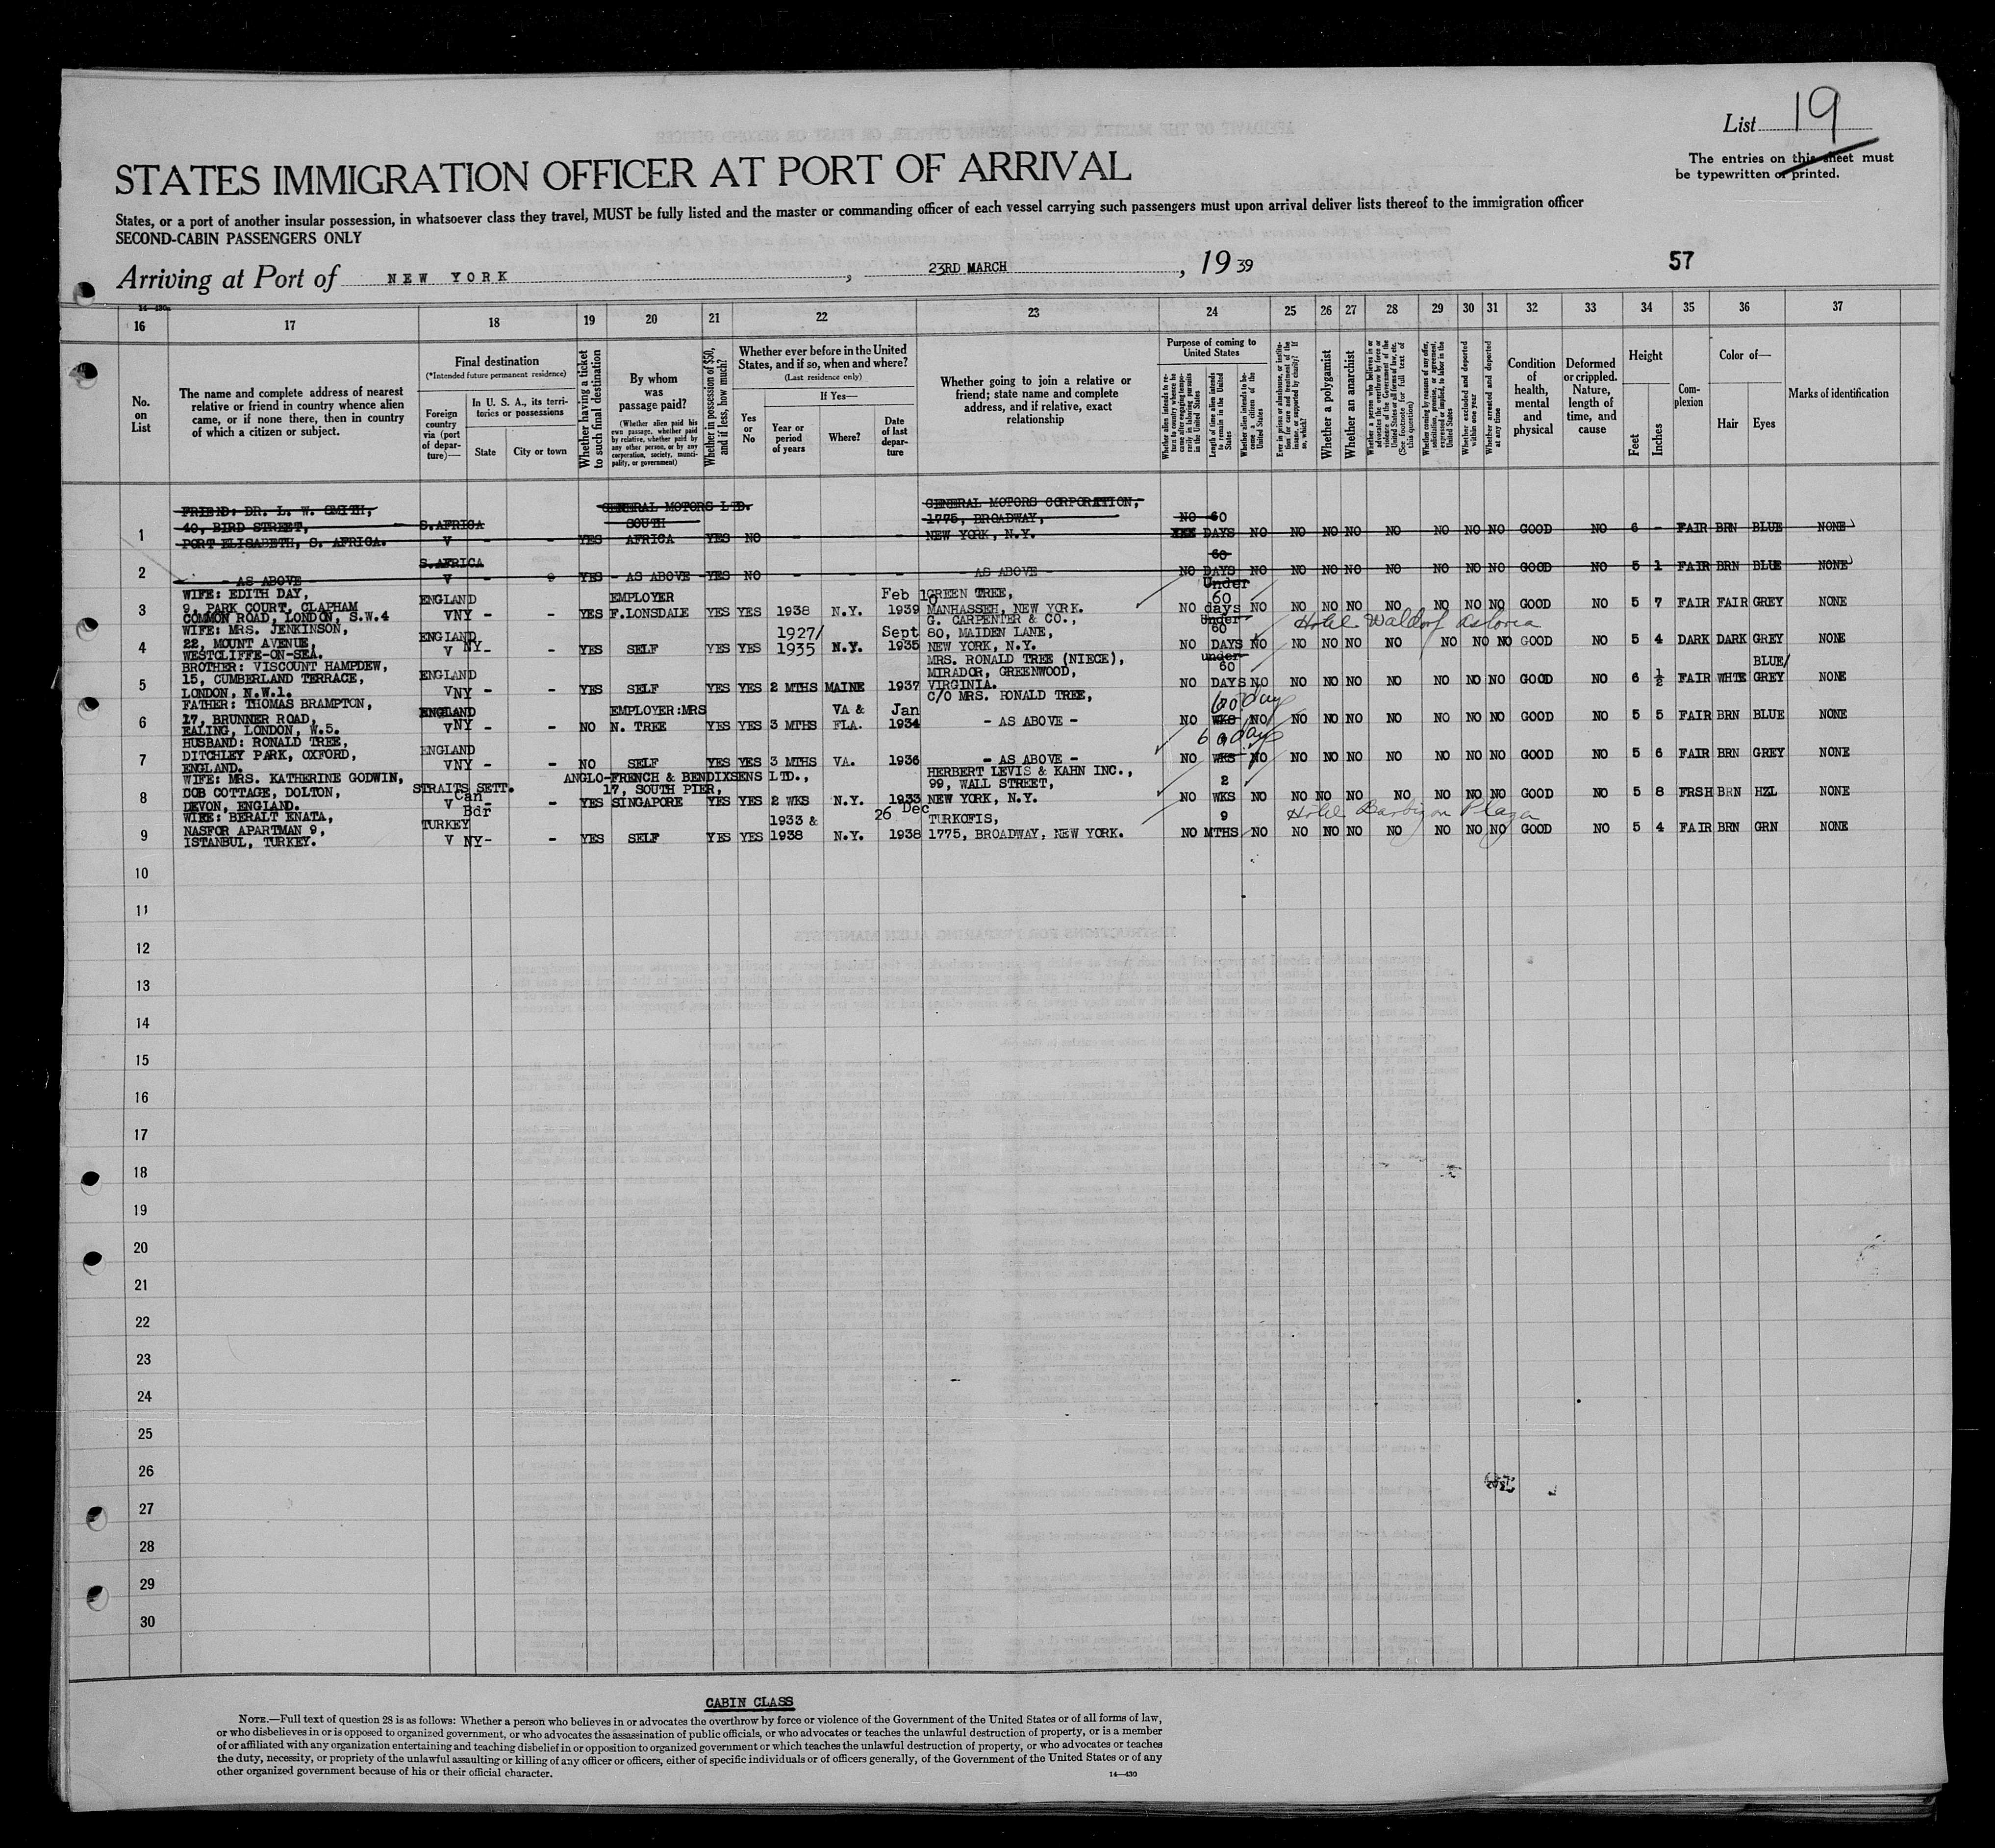 List 19
The entries on this sheet must
be typewritten or printed.
STATES IMMIGRATION OFFICER AT PORT OF ARRIVAL
States, or a port of another insular possession, in whatsoever class they travel, MUST be fully listed and the master or commanding officer of each vessel carrying such passengers must upon arrival deliver lists thereof to the immigration officer
SECOND-CABIN PASSENGERS ONLY
Arriving at Port of NEW YORK, 23RD MARCH, 1939
57
14—430a
16 17 18 19 20 21 22 23 24 25 26 27 28 29 30 31 32 33 34 35 36 37
No. on List
The name and complete address of nearest relative or friend in country whence alien came, or if none there, then in country of which a citizen or subject.
Final destination
(*Intended future permanent residence)
Foreign country via (port of departure)—
In U. S. A., its territories or possessions
State
City or town
Whether having a ticket to such final destination
By whom was passage paid?
(Whether alien paid his own passage, whether paid by relative, whether paid by any other person, or by any corporation, society, municipality, or government)
Whether in possession of $50, and if less, how much?
Whether ever before in the United States, and if so, when and where?
(Last residence only)
Yes or No
If Yes—
Year or period of years
Where?
Date of last departure
Whether going to join a relative or friend; state name and complete address, and if relative, exact relationship
Purpose of coming to United States
Whether alien intends to return to country whence he came after engaging temporarily in laboring pursuits in the United States
Length of time alien intends to remain in the United States
Whether alien intends to become a citizen of the United States
Ever in prison or almshouse, or institution for care and treatment of the insane, or supported by charity? If so, which?
Whether a polygamist
Whether an anarchist
Whether a person who believes in or advocates the overthrow by force or violence of the Government of the United States or all forms of law, etc. (See footnote for full text of this question)
Whether coming by reason of any offer, solicitation, promise, or agreement, expressed or implied, to labor in the United States
Whether excluded and deported within one year
Whether arrested and deported at any time
Condition of health, mental and physical
Deformed or crippled. Nature, length of time, and cause
Height
Feet
Inches
Complexion
Color of—
Hair
Eyes
Marks of identification
1 FRIEND: DR. L. W. SMITH,
40, BIRD STREET,
PORT ELISABETH, S. AFRICA. S.AFRICA V - - YES GENERAL MOTORS LTD. SOUTH AFRICA YES NO - - - GENERAL MOTORS CORPORATION, 1775, BROADWAY, NEW YORK, N.Y. NO 60 DAYS NO NO NO NO NO NO NO NO GOOD NO 6 - FAIR BRN BLUE NONE
2 - AS ABOVE - S.AFRICA V - YES - AS ABOVE - YES NO - - - - AS ABOVE - NO 60 DAYS NO NO NO NO NO NO NO NO GOOD NO 5 1 FAIR BRN BLUE NONE
3 WIFE: EDITH DAY,
9, PARK COURT, CLAPHAM
COMMON ROAD, LONDON, S.W.4 ENGLAND VNY - - YES EMPLOYER F.LONSDALE YES YES 1938 N.Y. Feb 10 1939 GREEN TREE, MANHASSEH, NEW YORK. NO Under 60 days NO NO NO NO NO NO NO NO GOOD NO 5 7 FAIR FAIR GREY NONE
4 WIFE: MRS. JENKINSON,
22, MOUNT AVENUE,
WESTCLIFFE-ON-SEA. ENGLAND V NY- - YES SELF YES YES 1927/1935 N.Y. Sept 1935 G. CARPENTER & CO., 80, MAIDEN LANE, NEW YORK, N.Y. NO Under 60 DAYS NO Hotel Waldorf Astoria NO NO NO NO NO NO NO GOOD NO 5 4 DARK DARK GREY NONE
5 BROTHER: VISCOUNT HAMPDEW,
15, CUMBERLAND TERRACE,
LONDON, N.W.1. ENGLAND VNY - - YES SELF YES YES 2 MTHS MAINE 1937 MRS. RONALD TREE (NIECE), MIRADOR, GREENWOOD, VIRGINIA. NO under 60 DAYS NO NO NO NO NO NO NO NO GOOD NO 6 ½ FAIR WHTE BLUE/GREY NONE
6 FATHER: THOMAS BRAMPTON,
17, BRUNNER ROAD,
EALING, LONDON, W.5. ENGLAND VNY - - NO EMPLOYER:MRS N. TREE YES YES 3 MTHS VA & FLA. Jan 1934 C/O MRS. RONALD TREE, - AS ABOVE - NO 60 days WKS NO NO NO NO NO NO NO NO GOOD NO 5 5 FAIR BRN BLUE NONE
7 HUSBAND: RONALD TREE,
DITCHLEY PARK, OXFORD,
ENGLAND. ENGLAND VNY - - NO SELF YES YES 3 MTHS VA. 1936 - AS ABOVE - NO 60 days WKS NO NO NO NO NO NO NO NO GOOD NO 5 6 FAIR BRN GREY NONE
8 WIFE: MRS. KATHERINE GODWIN,
COB COTTAGE, DOLTON,
DEVON, ENGLAND. STRAITS SETT. V Can Bdr - - YES ANGLO-FRENCH & BENDIXSENS LTD., 17, SOUTH PIER, SINGAPORE YES YES 2 WKS N.Y. 1933 HERBERT LEVIS & KAHN INC., 99, WALL STREET, NEW YORK, N.Y. NO 2 WKS NO NO NO NO NO NO NO NO GOOD NO 5 8 FRSH BRN HZL NONE
9 WIFE: BERALT ENATA,
NASFOR APARTMAN 9,
ISTANBUL, TURKEY. TURKEY V NY- - YES SELF YES YES 1933 & 1938 N.Y. 26 Dec 1938 TURKOFIS, 1775, BROADWAY, NEW YORK. NO 9 MTHS NO Hotel Barbizon Plaza NO NO NO NO NO NO NO GOOD NO 5 4 FAIR BRN GRN NONE
10
11
12
13
14
15
16
17
18
19
20
21
22
23
24
25
26
27
28
29
30
CABIN CLASS
NOTE.—Full text of question 28 is as follows: Whether a person who believes in or advocates the overthrow by force or violence of the Government of the United States or of all forms of law,
or who disbelieves in or is opposed to organized government, or who advocates the assassination of public officials, or who advocates or teaches the unlawful destruction of property, or is a member
of or affiliated with any organization entertaining and teaching disbelief in or opposition to organized government or which teaches the unlawful destruction of property, or who advocates or teaches
the duty, necessity, or propriety of the unlawful assaulting or killing of any officer or officers, either of specific individuals or of officers generally, of the Government of the United States or of any
other organized government because of his or their official character.
14—430